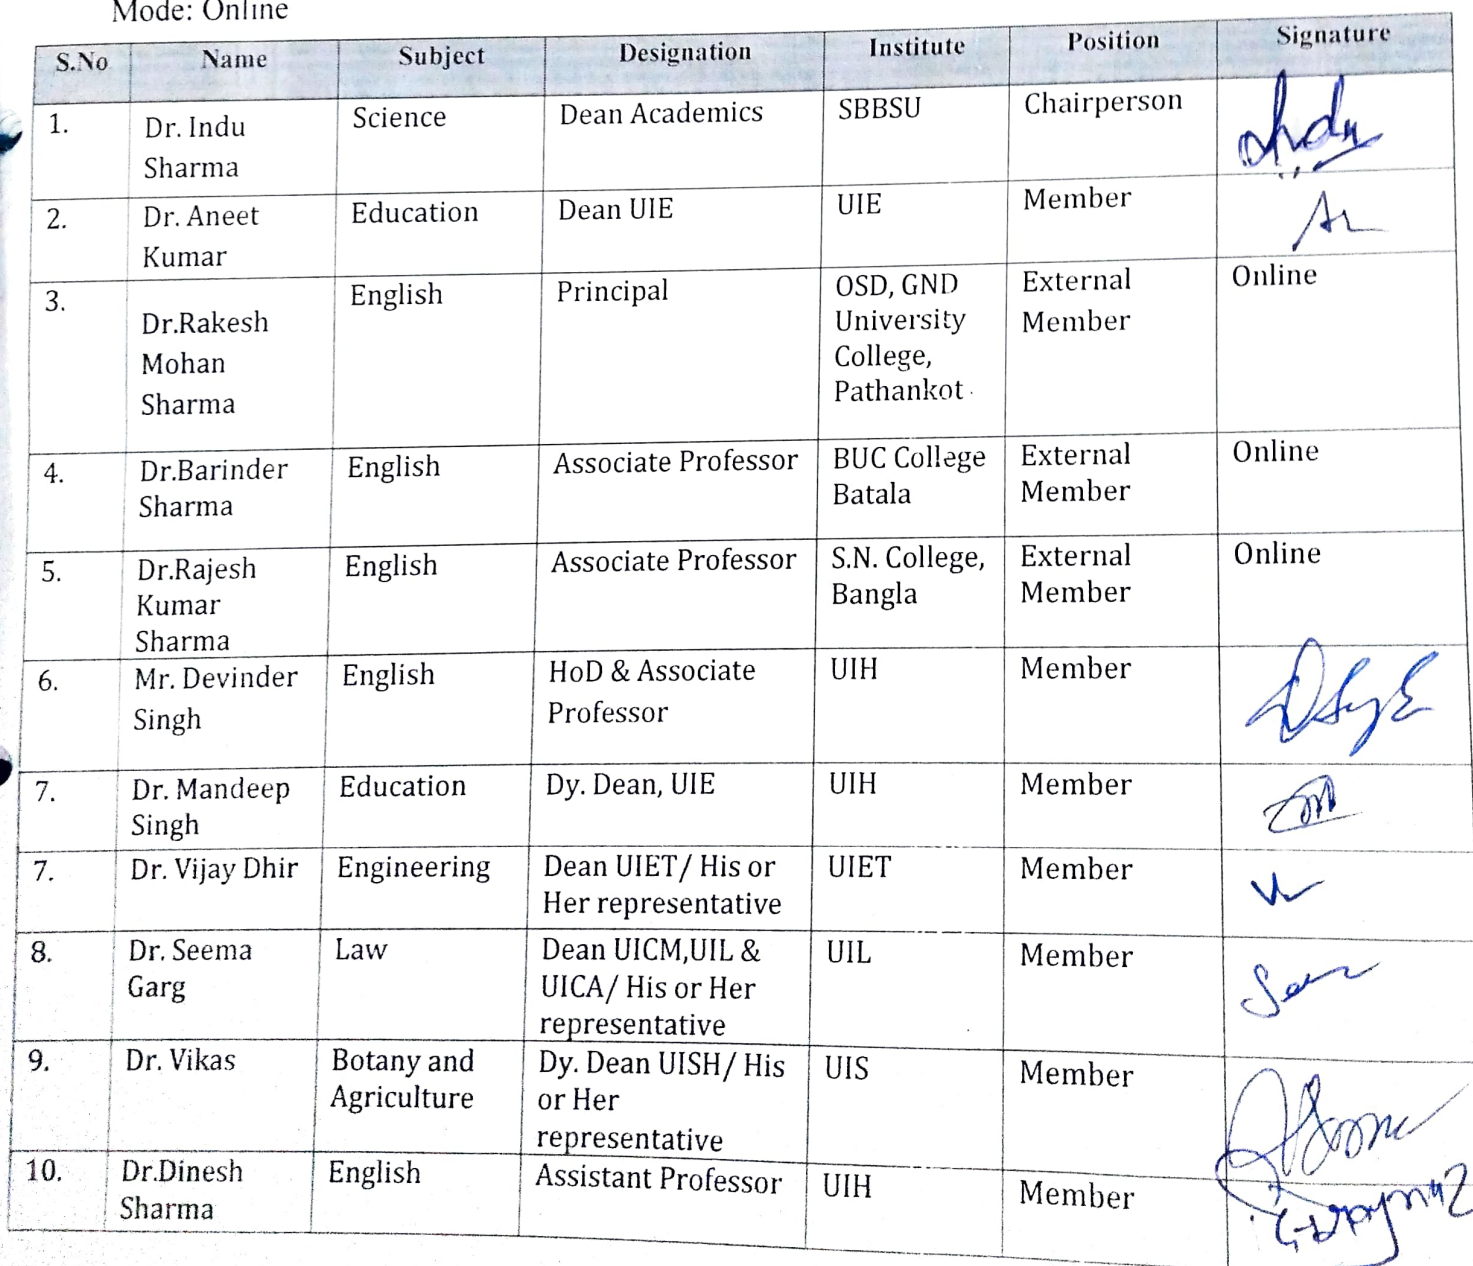 Mode: Online
S.No Name Subject Designation Institute Position Signature
1. Dr. Indu Sharma Science Dean Academics SBBSU Chairperson Indu
2. Dr. Aneet Kumar Education Dean UIE UIE Member
3. Dr.Rakesh Mohan Sharma English Principal OSD, GND University College, Pathankot External Member Online
4. Dr.Barinder Sharma English Associate Professor BUC College Batala External Member Online
5. Dr.Rajesh Kumar Sharma English Associate Professor S.N. College, Bangla External Member Online
6. Mr. Devinder Singh English HoD & Associate Professor UIH Member
7. Dr. Mandeep Singh Education Dy. Dean, UIE UIH Member
7. Dr. Vijay Dhir Engineering Dean UIET/ His or Her representative UIET Member
8. Dr. Seema Garg Law Dean UICM,UIL & UICA/ His or Her representative UIL Member
9. Dr. Vikas Botany and Agriculture Dy. Dean UISH/ His or Her representative UIS Member
10. Dr.Dinesh Sharma English Assistant Professor UIH Member